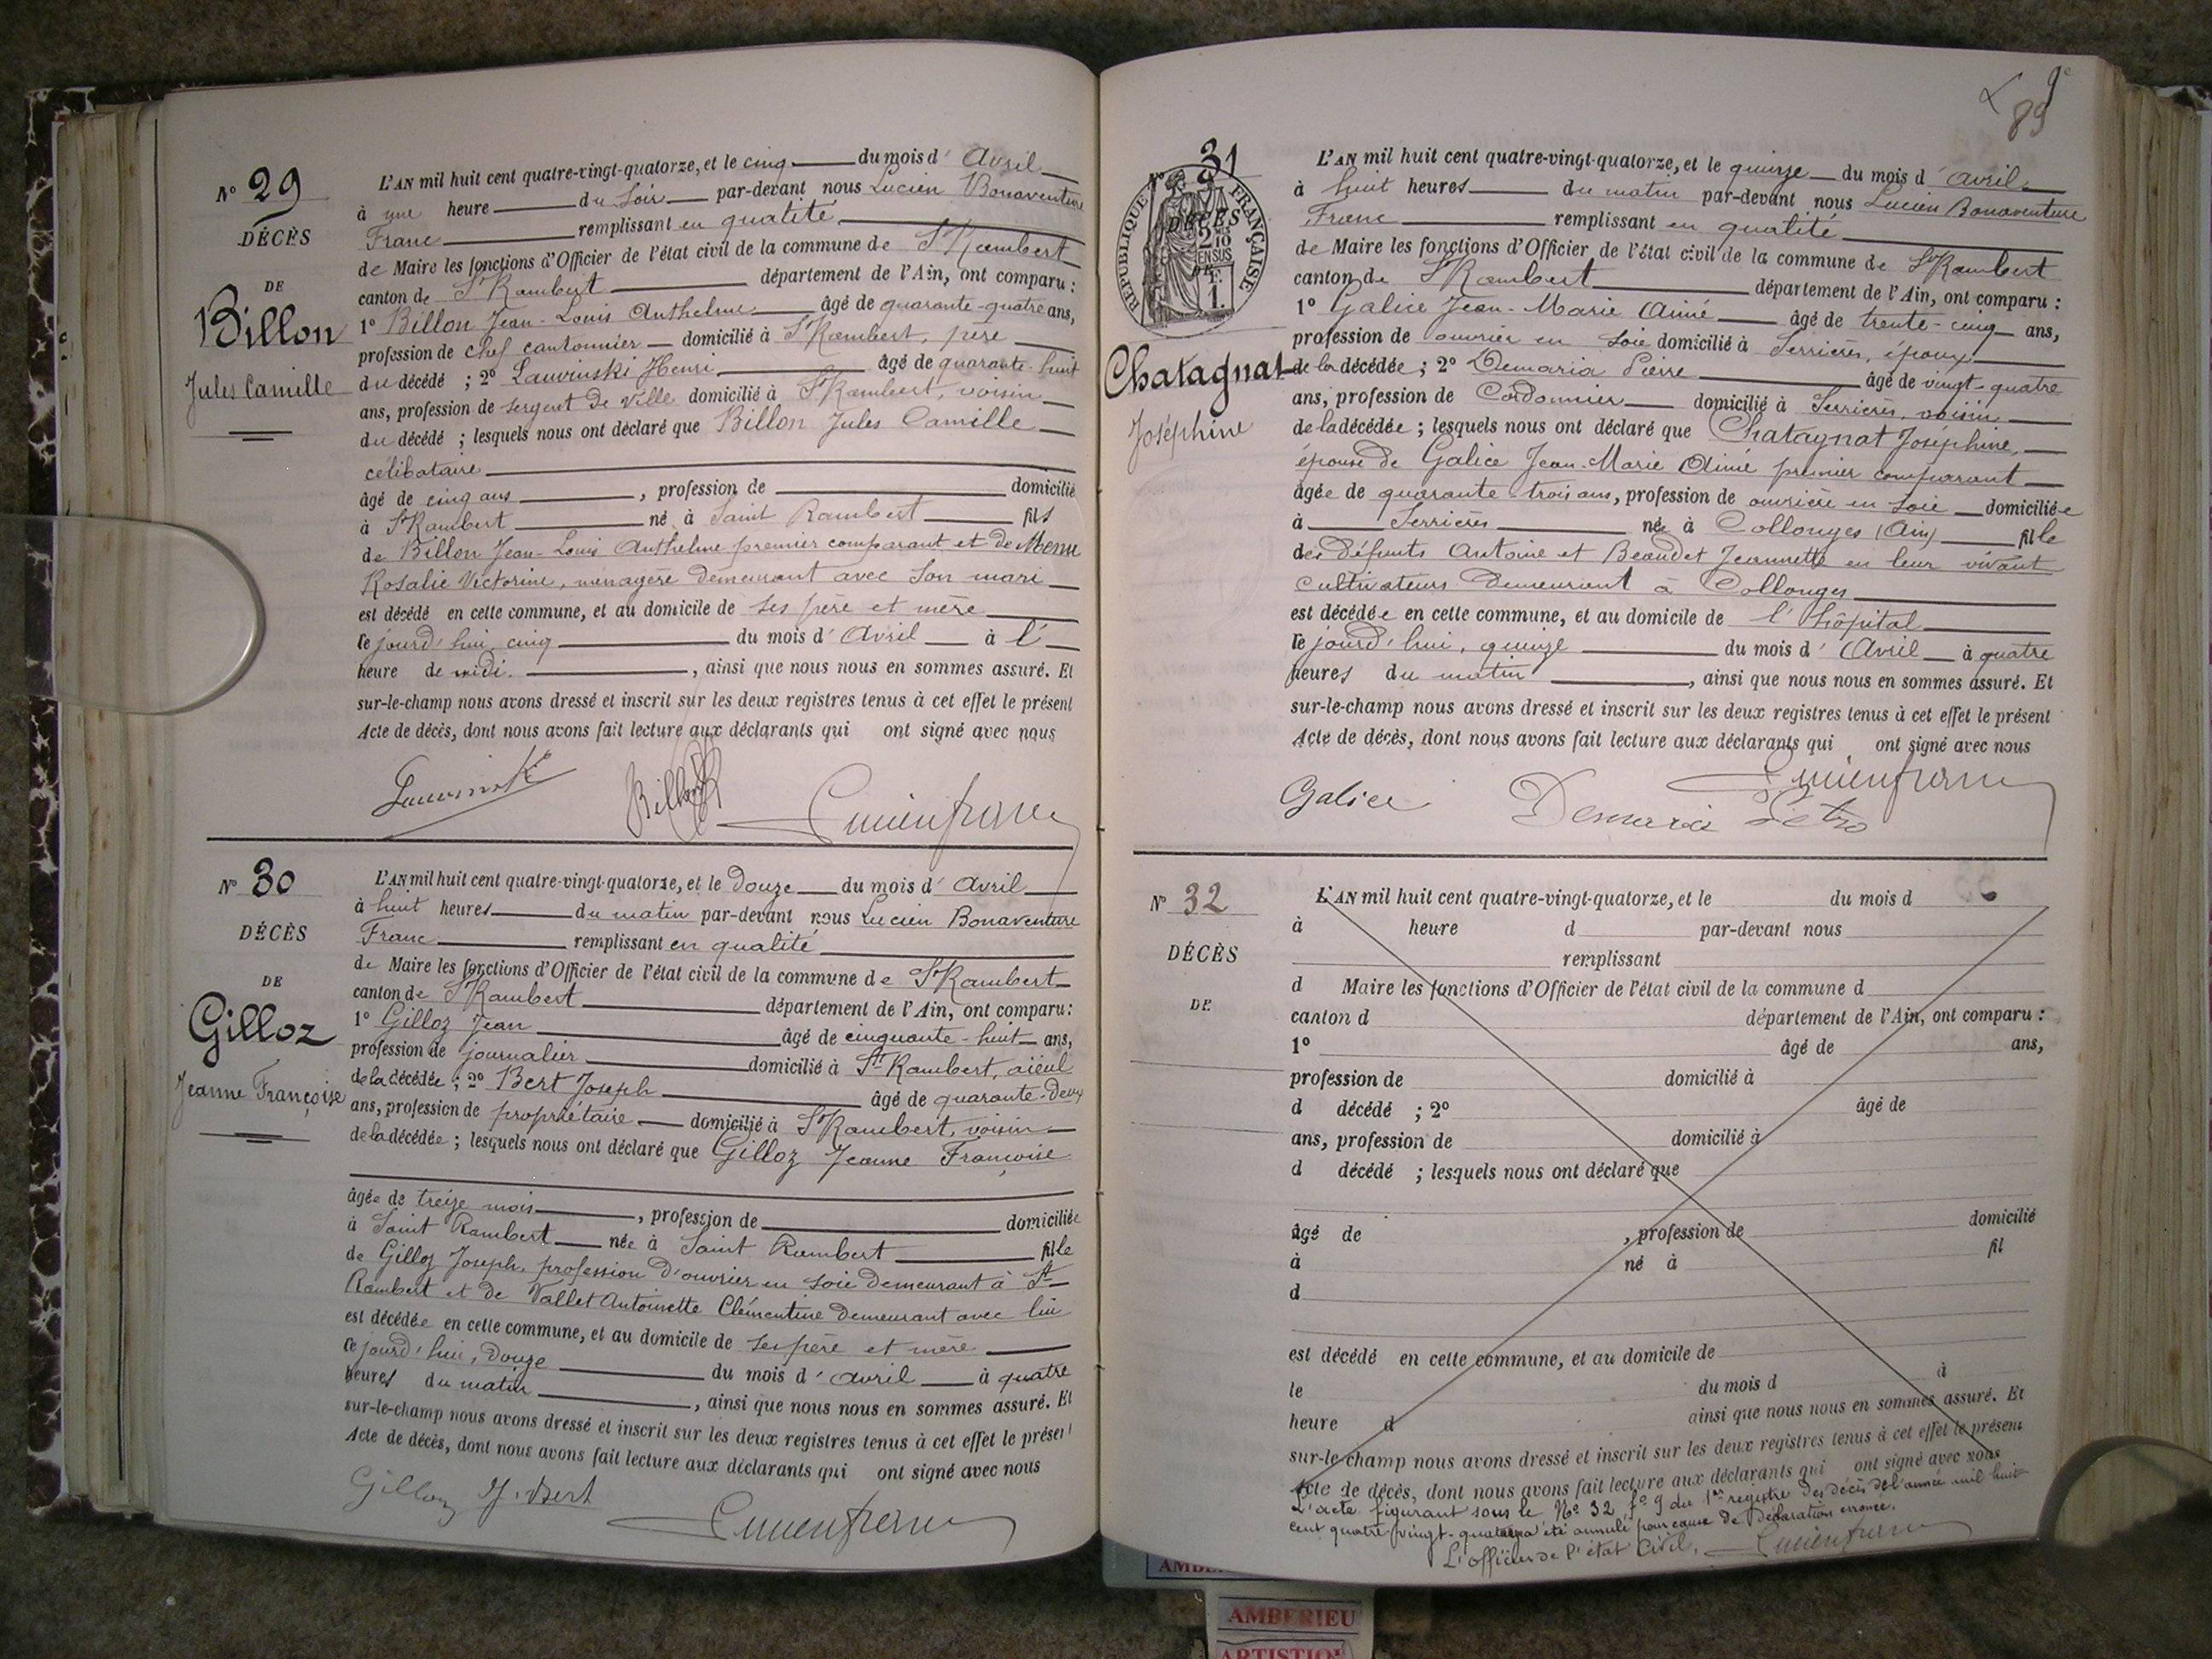 N° 29
DÉCÈS
DE
Billon
Jules Camille
L'AN mil huit cent quatre-vingt-quatorze, et le cinq du mois d' Avril
à une heure du soir par-devant nous Lucien Bonaventure
Franc remplissant en qualité
de Maire les fonctions d'Officier de l'état civil de la commune de St Rambert
canton de St Rambert département de l'Ain, ont comparu :
1° Billon Jean-Louis Anthelme âgé de quarante-quatre ans,
profession de chef cantonnier domicilié à St Rambert, père
du décédé ; 2° Lauvinski Henri âgé de quarante-huit
ans, profession de sergent de ville domicilié à St Rambert, voisin
du décédé ; lesquels nous ont déclaré que Billon Jules Camille
célibataire
âgé de cinq ans , profession de domicilié
à St Rambert né à Saint Rambert fils
de Billon Jean-Louis Anthelme premier comparant et de Menu
Rosalie Victorine, ménagère demeurant avec son mari
est décédé en cette commune, et au domicile de ses père et mère
le jourd'hui cinq du mois d' Avril à l'
heure de midi. , ainsi que nous nous en sommes assuré. Et
sur-le-champ nous avons dressé et inscrit sur les deux registres tenus à cet effet le présent
Acte de décès, dont nous avons fait lecture aux déclarants qui ont signé avec nous
Billon Lucien franc
N° 30
DÉCÈS
DE
Gilloz
Jeanne Françoise
L'AN mil huit cent quatre-vingt-quatorze, et le douze du mois d' Avril
à huit heures du matin par-devant nous Lucien Bonaventure
Franc remplissant en qualité
de Maire les fonctions d'Officier de l'état civil de la commune de St Rambert
canton de St Rambert département de l'Ain, ont comparu :
1° Gilloz Jean âgé de cinquante-huit ans,
profession de journalier domicilié à St Rambert, aïeul
de la décédée ; 2° Bert Joseph âgé de quarante-deux
ans, profession de propriétaire domicilié à St Rambert, voisin
de la décédée ; lesquels nous ont déclaré que Gilloz Jeanne Françoise
âgée de treize mois , profession de domiciliée
à Saint Rambert née à Saint Rambert fille
de Gilloz Joseph, profession d'ouvrier en soie demeurant à St
Rambert et de Vallet Antoinette Clémentine demeurant avec lui
est décédée en cette commune, et au domicile de ses père et mère
le jourd'hui, douze du mois d' avril à quatre
heures du matin , ainsi que nous nous en sommes assuré. Et
sur-le-champ nous avons dressé et inscrit sur les deux registres tenus à cet effet le présent
Acte de décès, dont nous avons fait lecture aux déclarants qui ont signé avec nous
Gilloz J. Bert Lucien franc
9e
89
N° 31
RÉPUBLIQUE FRANÇAISE
DÉCÈS
2/10
EN SUS
DE
1 F.
Chatagnat
Joséphine
L'AN mil huit cent quatre-vingt-quatorze, et le quinze du mois d' avril
à huit heures du matin par-devant nous Lucien Bonaventure
Franc remplissant en qualité
de Maire les fonctions d'Officier de l'état civil de la commune de St Rambert
canton de St Rambert département de l'Ain, ont comparu :
1° Galice Jean-Marie Aimé âgé de trente-cinq ans,
profession de ouvrier en soie domicilié à Serrières, époux
de la décédée ; 2° Demaria Pierre âgé de vingt-quatre
ans, profession de Cordonnier domicilié à Serrières, voisin
de la décédée ; lesquels nous ont déclaré que Chatagnat Joséphine,
épouse de Galice Jean-Marie Aimé premier comparant
âgée de quarante-trois ans, profession de ouvrière en soie domiciliée
à Serrières née à Collonges (Ain) fille
des défunts Antoine et Beaudet Jeannette en leur vivant
cultivateurs demeurant à Collonges
est décédée en cette commune, et au domicile de l'hôpital
le jourd'hui, quinze du mois d' Avril à quatre
heures du matin , ainsi que nous nous en sommes assuré. Et
sur-le-champ nous avons dressé et inscrit sur les deux registres tenus à cet effet le présent
Acte de décès, dont nous avons fait lecture aux déclarants qui ont signé avec nous
Lucien franc
Galice Demaria Petro
N° 32
DÉCÈS
DE
L'AN mil huit cent quatre-vingt-quatorze, et le du mois d
à heure d par-devant nous
remplissant
d Maire les fonctions d'Officier de l'état civil de la commune d
canton d département de l'Ain, ont comparu :
1° âgé de ans,
profession de domicilié à
d décédé ; 2° âgé de
ans, profession de domicilié à
d décédé ; lesquels nous ont déclaré que
âgé de , profession de domicilié
à né à fil
d
est décédé en cette commune, et au domicile de
le du mois d à
heure d ainsi que nous nous en sommes assuré. Et
sur-le-champ nous avons dressé et inscrit sur les deux registres tenus à cet effet le présent
Acte de décès, dont nous avons fait lecture aux déclarants qui ont signé avec nous
L'acte figurant sous le No 32 fo 9 du 1er registre des décès de l'année mil huit
cent quatre-vingt-quatorze a été annulé pour cause de déclaration erronée.
L'officier de l'état civil, Lucien franc
AMBERIEU